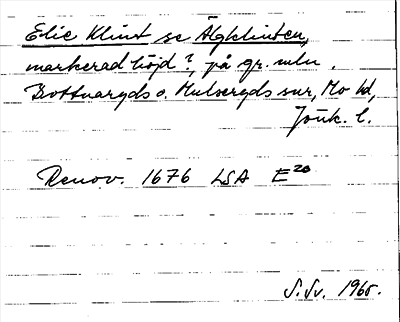 Elie Klint se Älgklinten,
markerad höjd?, på gr. mln.
Bottnaryds o. Mulseryds snr, Mo hd,
Jönk. l.
Renov. 1676 LSA E20
S. Sv. 1965.